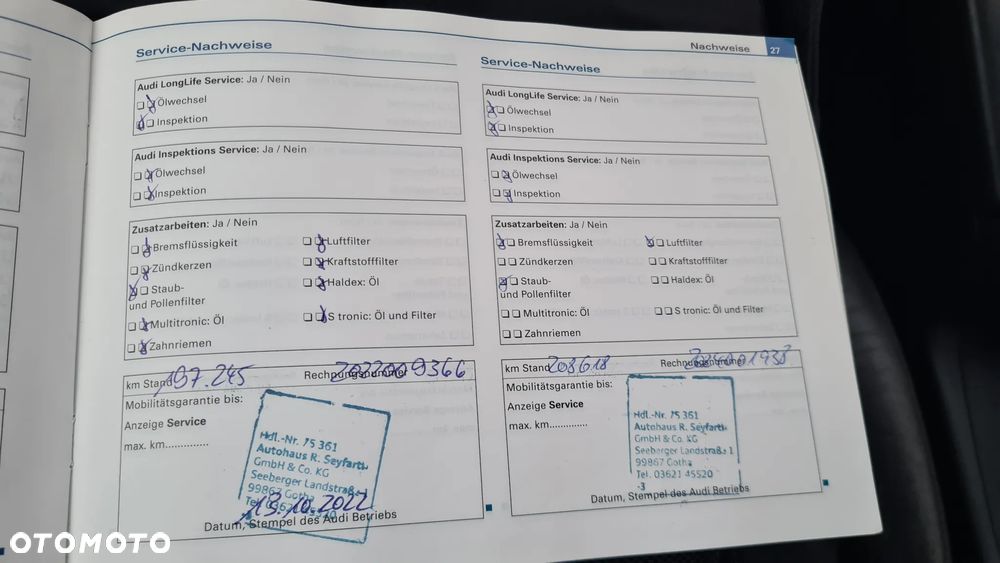 Service-Nachweise
Audi LongLife Service: Ja / Nein
Ölwechsel
Inspektion
Audi Inspektions Service: Ja / Nein
Ölwechsel
Inspektion
Zusatzarbeiten: Ja / Nein
Bremsflüssigkeit
Luftfilter
Zündkerzen
Kraftstofffilter
Staub-
und Pollenfilter
Haldex: Öl
Multitronic: Öl
S tronic: Öl und Filter
Zahnriemen
km Stand 197.245
Rechnungsnummer 2022009366
Mobilitätsgarantie bis:
Anzeige Service
max. km..............
Hdl.-Nr. 75 361
Autohaus R. Seyfarth
GmbH & Co. KG
Seeberger Landstraße
99867 Gotha
13.10.2022
Datum, Stempel des Audi Betriebs
Nachweise 27
Service-Nachweise
Audi LongLife Service: Ja / Nein
Ölwechsel
Inspektion
Audi Inspektions Service: Ja / Nein
Ölwechsel
Inspektion
Zusatzarbeiten: Ja / Nein
Bremsflüssigkeit
Luftfilter
Zündkerzen
Kraftstofffilter
Staub-
und Pollenfilter
Haldex: Öl
Multitronic: Öl
S tronic: Öl und Filter
Zahnriemen
km Stand 208618
Rechnungsnummer
Mobilitätsgarantie bis:
Anzeige Service
max. km..............
Hdl.-Nr. 75 361
Autohaus R. Seyfarth
GmbH & Co. KG
Seeberger Landstraße 1
99867 Gotha
Tel. 03621 45520
-3
Datum, Stempel des Audi Betriebs
OTOMOTO